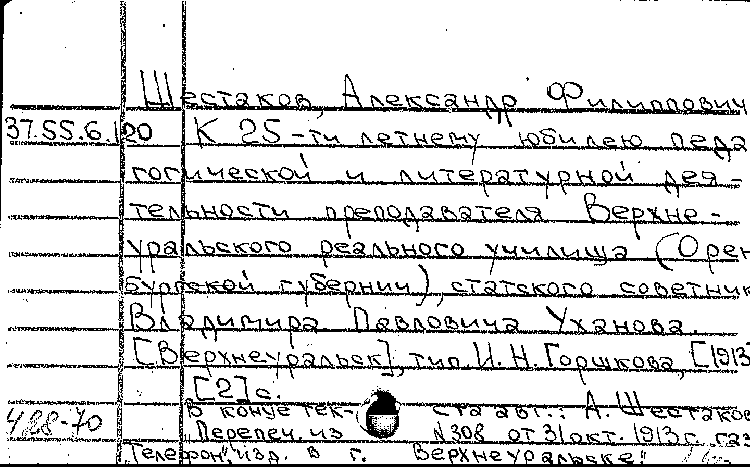 Шестаков, Александр Филиппович
37.55.6.120 К 25-ти летнему юбилею педа
гогической и литературной дея-
тельности преподавателя Верхне-
уральского реального училища (Орен
бургской губернии), статского советник
Владимира Павловича Уханова.
[Верхнеуральск], тип. И. Н. Горшкова, [1913
[2] с.
В конце тек- ста авт.: А. Шестаков
488-70 Перепеч. из №308 от 31 окт. 1913 г. газ
"Телефон", изд. в г. Верхнеуральске.